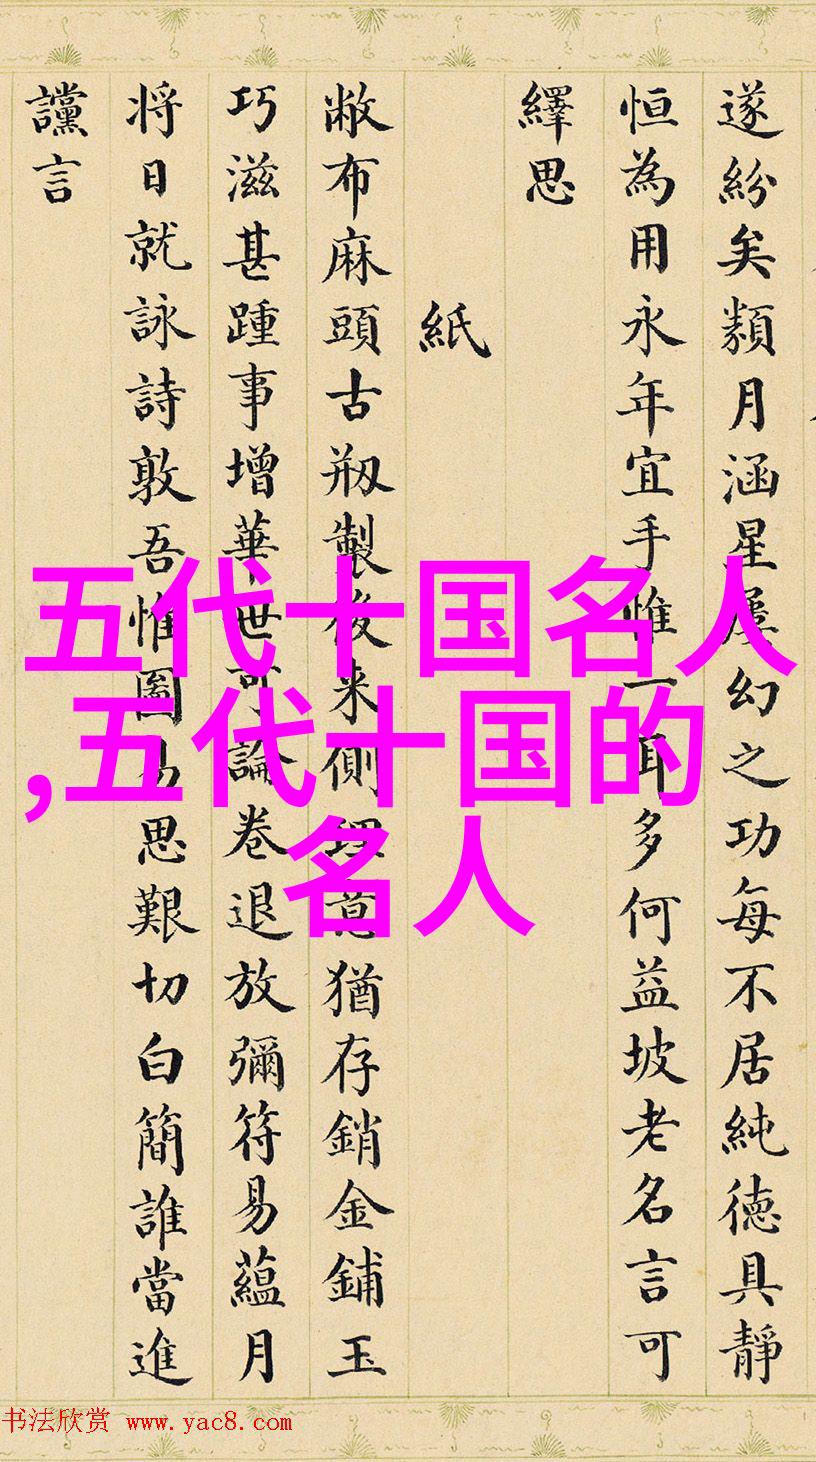 遂紛矣類月涵星屢幻之功每不居純德具靜
恒為用永年宜手惟一耳多何益坡老名言可
繹思
紙
敝布麻頭古刱製後来側理意猶存銷金鋪玉
巧滋甚踵事增華世可論卷退放彌符易蘊月
将日就詠詩敦吾惟圖易思艱切白簡誰當進
讜言
五代十国名人
,五代十国的
名人
书法欣赏 www.yac8.com